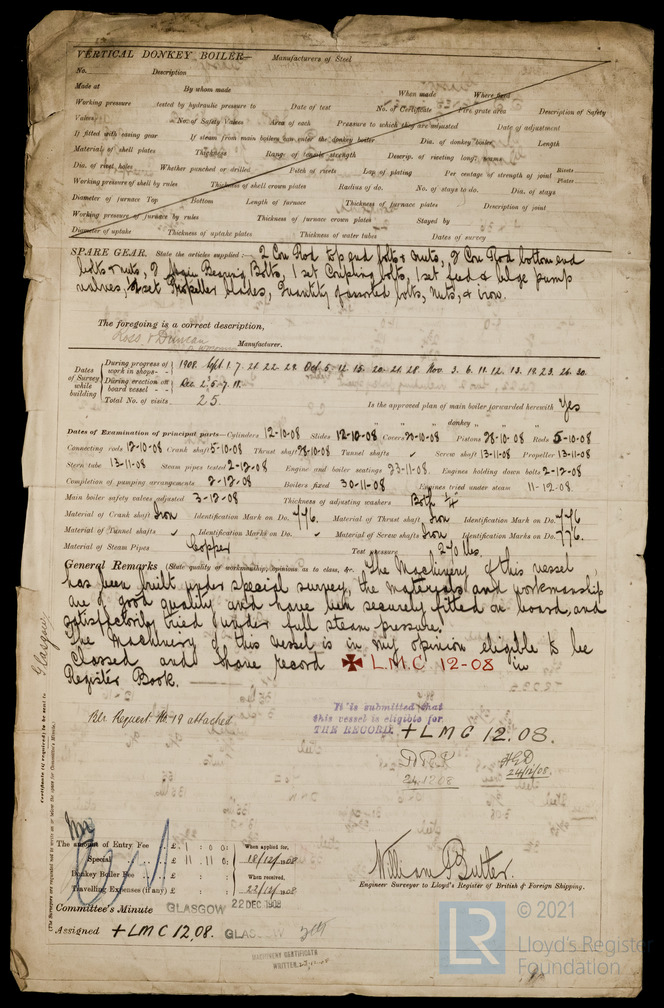 VERTICAL DONKEY BOILER— Manufacturers of Steel
No. Description
Made at By whom made When made Where fixed
Working pressure tested by hydraulic pressure to Date of test No. of Certificate Fire grate area Description of Safety
Valves No. of Safety Valves Area of each Pressure to which they are adjusted Date of adjustment
If fitted with easing gear If steam from main boilers can enter the donkey boiler Dia. of donkey boiler Length
Material of shell plates Thickness Range of tensile strength Descrip. of riveting long. seams
Dia. of rivet holes Whether punched or drilled Pitch of rivets Lap of plating Per centage of strength of joint Rivets Plates
Working pressure of shell by rules Thickness of shell crown plates Radius of do. No. of stays to do. Dia. of stays
Diameter of furnace Top Bottom Length of furnace Thickness of furnace plates Description of joint
Working pressure of furnace by rules Thickness of furnace crown plates Stayed by
Diameter of uptake Thickness of uptake plates Thickness of water tubes Dates of survey
SPARE GEAR. State the articles supplied:— 2 Con Rod top end bolts & nuts, 2 Con Rod bottom end
bolts & nuts, 2 Main Bearing Bolts, 1 set Coupling bolts, 1 set feed & bilge pump
valves, 1 set Propeller blades, Quantity of assorted bolts, nuts, & iron.
The foregoing is a correct description,
Ross & Duncan
Manufacturer.
Dates of Survey while building
During progress of work in shops-- 1908. Sept 1. 7. 21. 22. 28. Oct 5. 12. 15. 20. 21. 28. Nov. 3. 6. 11. 12. 13. 19. 23. 26. 30.
During erection on board vessel-- Dec 2. 5. 7. 11.
Total No. of visits 25.
Is the approved plan of main boiler forwarded herewith Yes
" " " donkey " " "
Dates of Examination of principal parts—Cylinders 12-10-08 Slides 12-10-08 Covers 20-10-08 Pistons 28-10-08 Rods 5-10-08
Connecting rods 12-10-08 Crank shaft 5-10-08 Thrust shaft 28-10-08 Tunnel shafts ✓ Screw shaft 13-11-08 Propeller 13-11-08
Stern tube 13-11-08 Steam pipes tested 2-12-08 Engine and boiler seatings 23-11-08. Engines holding down bolts 2-12-08
Completion of pumping arrangements 2-12-08 Boilers fixed 30-11-08 Engines tried under steam 11-12-08.
Main boiler safety valves adjusted 3-12-08 Thickness of adjusting washers Both 1/4"
Material of Crank shaft Iron Identification Mark on Do. 776. Material of Thrust shaft Iron Identification Mark on Do. 776
Material of Tunnel shafts ✓ Identification Marks on Do. ✓ Material of Screw shafts Iron Identification Marks on Do. 776.
Material of Steam Pipes Copper Test pressure 270 lbs.
General Remarks (State quality of workmanship, opinions as to class, &c. The Machinery of this vessel
has been built under special survey, the materials and workmanship
are of good quality and have been securely fitted on board, and
satisfactorily tried under full steam pressure.
The Machinery of this vessel is in my opinion eligible to be
Classed and have record ✠ L.M.C 12-08 in
Register Book.
Blr Request No 19 attached
It is submitted that
this vessel is eligible for
THE RECORD. + LMC 12.08.
24.12.08
24/12/08.
Certificate (if required) to be sent to Glasgow
(The Surveyors are requested not to write on or below the space for Committee's Minute.)
The amount of Entry Fee .. £ 1 : 0 : 0: When applied for,
Special .. .. £ 11 : 11 : 0: 18/12/1908
Donkey Boiler Fee .. .. £ : : When received,
Travelling Expenses (if any) £ : : 22/12/1908
William Butler.
Engineer Surveyor to Lloyd's Register of British & Foreign Shipping.
Committee's Minute GLASGOW 22 DEC 1908
Assigned + LMC 12.08. GLASGOW
MACHINERY CERTIFICATE
WRITTEN
LR
© 2021
Lloyd's Register
Foundation